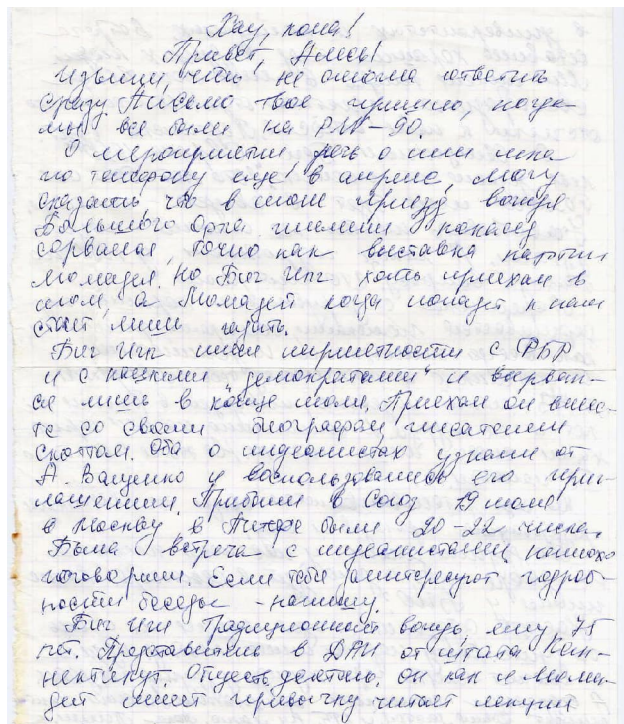 Хау, кола!
Привет, Алесь!
Извини, что не смогла ответить
сразу. Письмо твоё пришло, когда
мы все были на РМ-90.
О мероприятии речь о нем шла
по телефону ещё в апреле, могу
сказать что в мою приезд вождя
Большого Орла числилась
сорвался, точно как выставка картин
Момадея. Но Биг Игл хоть приехал в
июле, а Момадей когда попадет к нам
стоит лишь гадать.
Биг Игл имел неприятности с ФБР
и с нашими "демократами" и вырвал-
ся лишь в конце июля. Приехал он вмес-
те со своим биографом писателем
Скоттом. Оба о индеанистах узнали от
А. Ващенко и воспользовались его приг-
лашением. Прибыли в Союз 19 июля
в Москву, в Питере были 20-22 числа.
Была встреча с индеанистами,
поговорили. Если тебя заинтересуют подроб-
ности беседы - напишу.
Биг Игл традиционный вождь, ему 75
лет. Представитель в ДАИ от штата Кон-
нектикут. Отчасти деятель, он как и Мома-
дей имеет привычку читает лекции